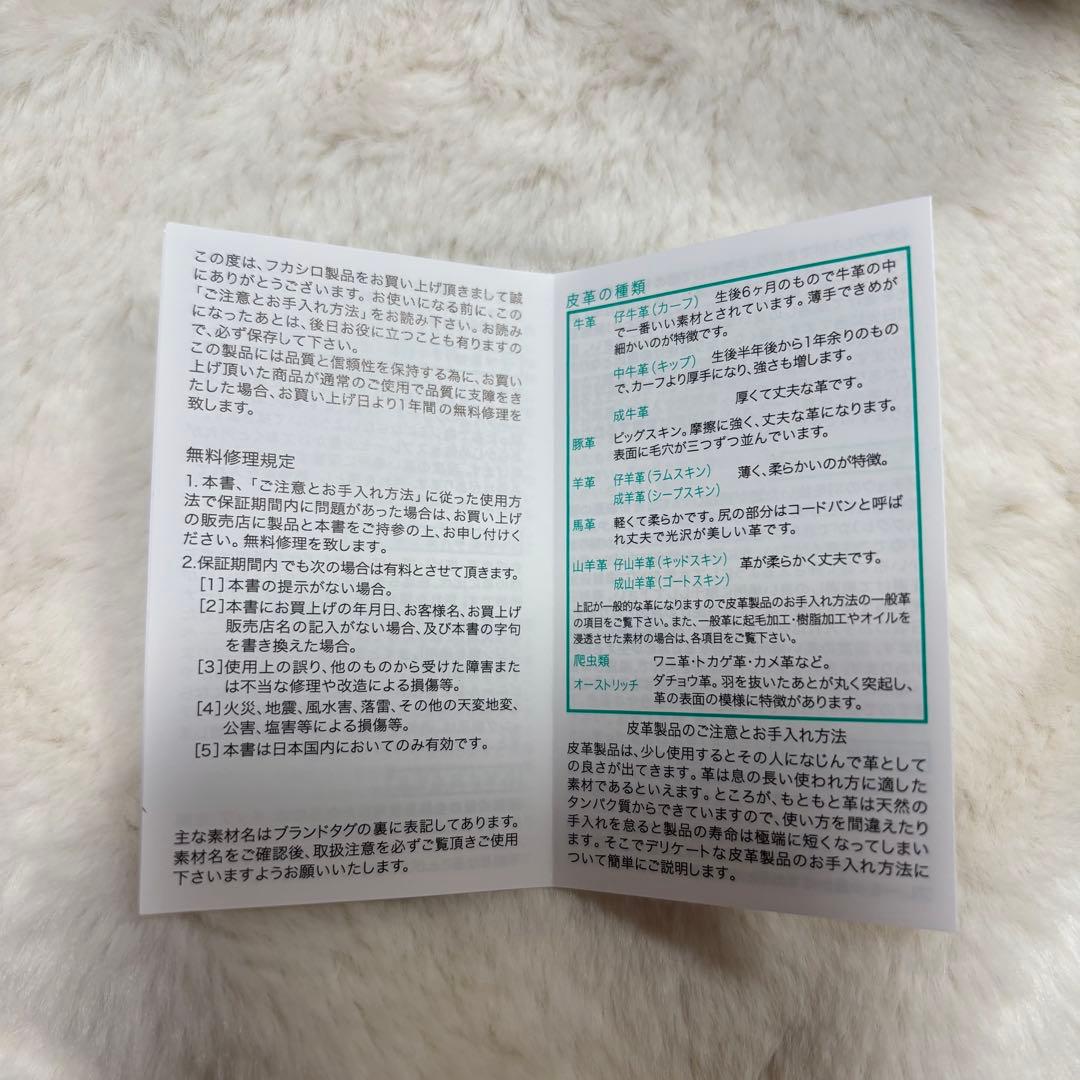 この度は、フカシロ製品をお買い上げ頂きまして誠
にありがとうございます。お使いになる前に、この
「ご注意とお手入れ方法」をお読み下さい。お読み
になったあとは、後日お役に立つことも有りますの
で、必ず保存して下さい。
この製品には品質と信頼性を保持する為に、お買い
上げ頂いた商品が通常のご使用で品質に支障をき
たした場合、お買い上げ日より1年間の無料修理を
致します。
無料修理規定
1.本書、「ご注意とお手入れ方法」に従った使用方
法で保証期間内に問題があった場合は、お買い上げ
の販売店に製品と本書をご持参の上、お申し付けく
ださい。無料修理を致します。
2.保証期間内でも次の場合は有料とさせて頂きます。
[1]本書の提示がない場合。
[2]本書にお買上げの年月日、お客様名、お買上げ
販売店名の記入がない場合、及び本書の字句
を書き換えた場合。
[3]使用上の誤り、他のものから受けた障害また
は不当な修理や改造による損傷等。
[4]火災、地震、風水害、落雷、その他の天変地変、
公害、塩害等による損傷等。
[5]本書は日本国内においてのみ有効です。
主な素材名はブランドタグの裏に表記してあります。
素材名をご確認後、取扱注意を必ずご覧頂きご使用
下さいますようお願いいたします。
皮革の種類
牛革 仔牛革(カーフ) 生後6ヶ月のもので牛革の中
で一番いい素材とされています。薄手できめが
細かいのが特徴です。
中牛革(キップ) 生後半年後から1年余りのもの
で、カーフより厚手になり、強さも増します。
成牛革 厚くて丈夫な革です。
豚革 ピッグスキン。摩擦に強く、丈夫な革になります。
表面に毛穴が三つずつ並んでいます。
羊革 仔羊革(ラムスキン) 薄く、柔らかいのが特徴。
成羊革(シープスキン)
馬革 軽くて柔らかです。尻の部分はコードバンと呼ば
れ丈夫で光沢が美しい革です。
山羊革 仔山羊革(キッドスキン) 革が柔らかく丈夫です。
成山羊革(ゴートスキン)
上記が一般的な革になりますので皮革製品のお手入れ方法の一般革
の項目をご覧下さい。また、一般革に起毛加工・樹脂加工やオイルを
浸透させた素材の場合は、各項目をご覧下さい。
爬虫類 ワニ革・トカゲ革・カメ革など。
オーストリッチ ダチョウ革。羽を抜いたあとが丸く突起し、
革の表面の模様に特徴があります。
皮革製品のご注意とお手入れ方法
皮革製品は、少し使用するとその人になじんで革として
の良さが出てきます。革は息の長い使われ方に適した
素材であるといえます。ところが、もともと革は天然の
タンパク質からできていますので、使い方を間違えたり
手入れを怠ると製品の寿命は極端に短くなってしまい
ます。そこでデリケートな皮革製品のお手入れ方法に
ついて簡単にご説明します。